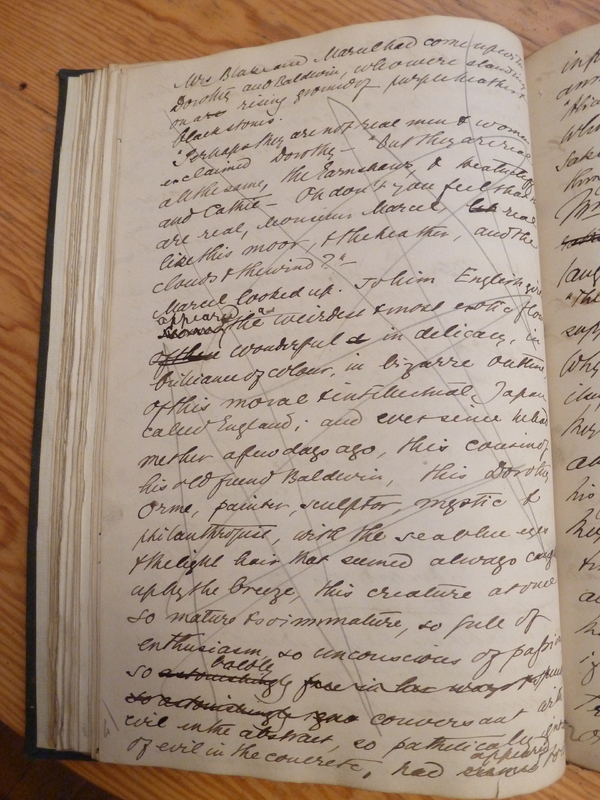 Mrs Blake and Marcel had come up with
Dorothy and Baldwin, who were standing
on a rising ground of purple heather &
black stones.
"Perhaps they are not real men & women"
exclaimed Dorothy — "But they are real
all the same, the Earnshaws, & Heathcliff
and Cathie — Oh don't you feel that
are real, Monsieur Marcel real
like this moor, & the heather, and the
clouds & the wind?"—
Marcel looked up. To him English girls
appeared as
the weirdest & most exotic
wonderful in delicacy, in
brilliance of colour, in bizarre outline
of this moral & intellectual Japan
called England; and ever since he had
met her a few days ago, this cousin of
his old friend Baldwin, this Dorothy
Orme, painter, sculptor, mystic &
philanthropist, with the sea blue eyes
& the light hair that seemed always caught
up by the breeze, this creature at once
so mature & so immature, so full of
enthusiasm, so unconscious of passion
boldly
so astonishingly free in her ways
so astonishingly conversant with
evil in the abstract, so pathetically
appeared
of evil in the concrete, had